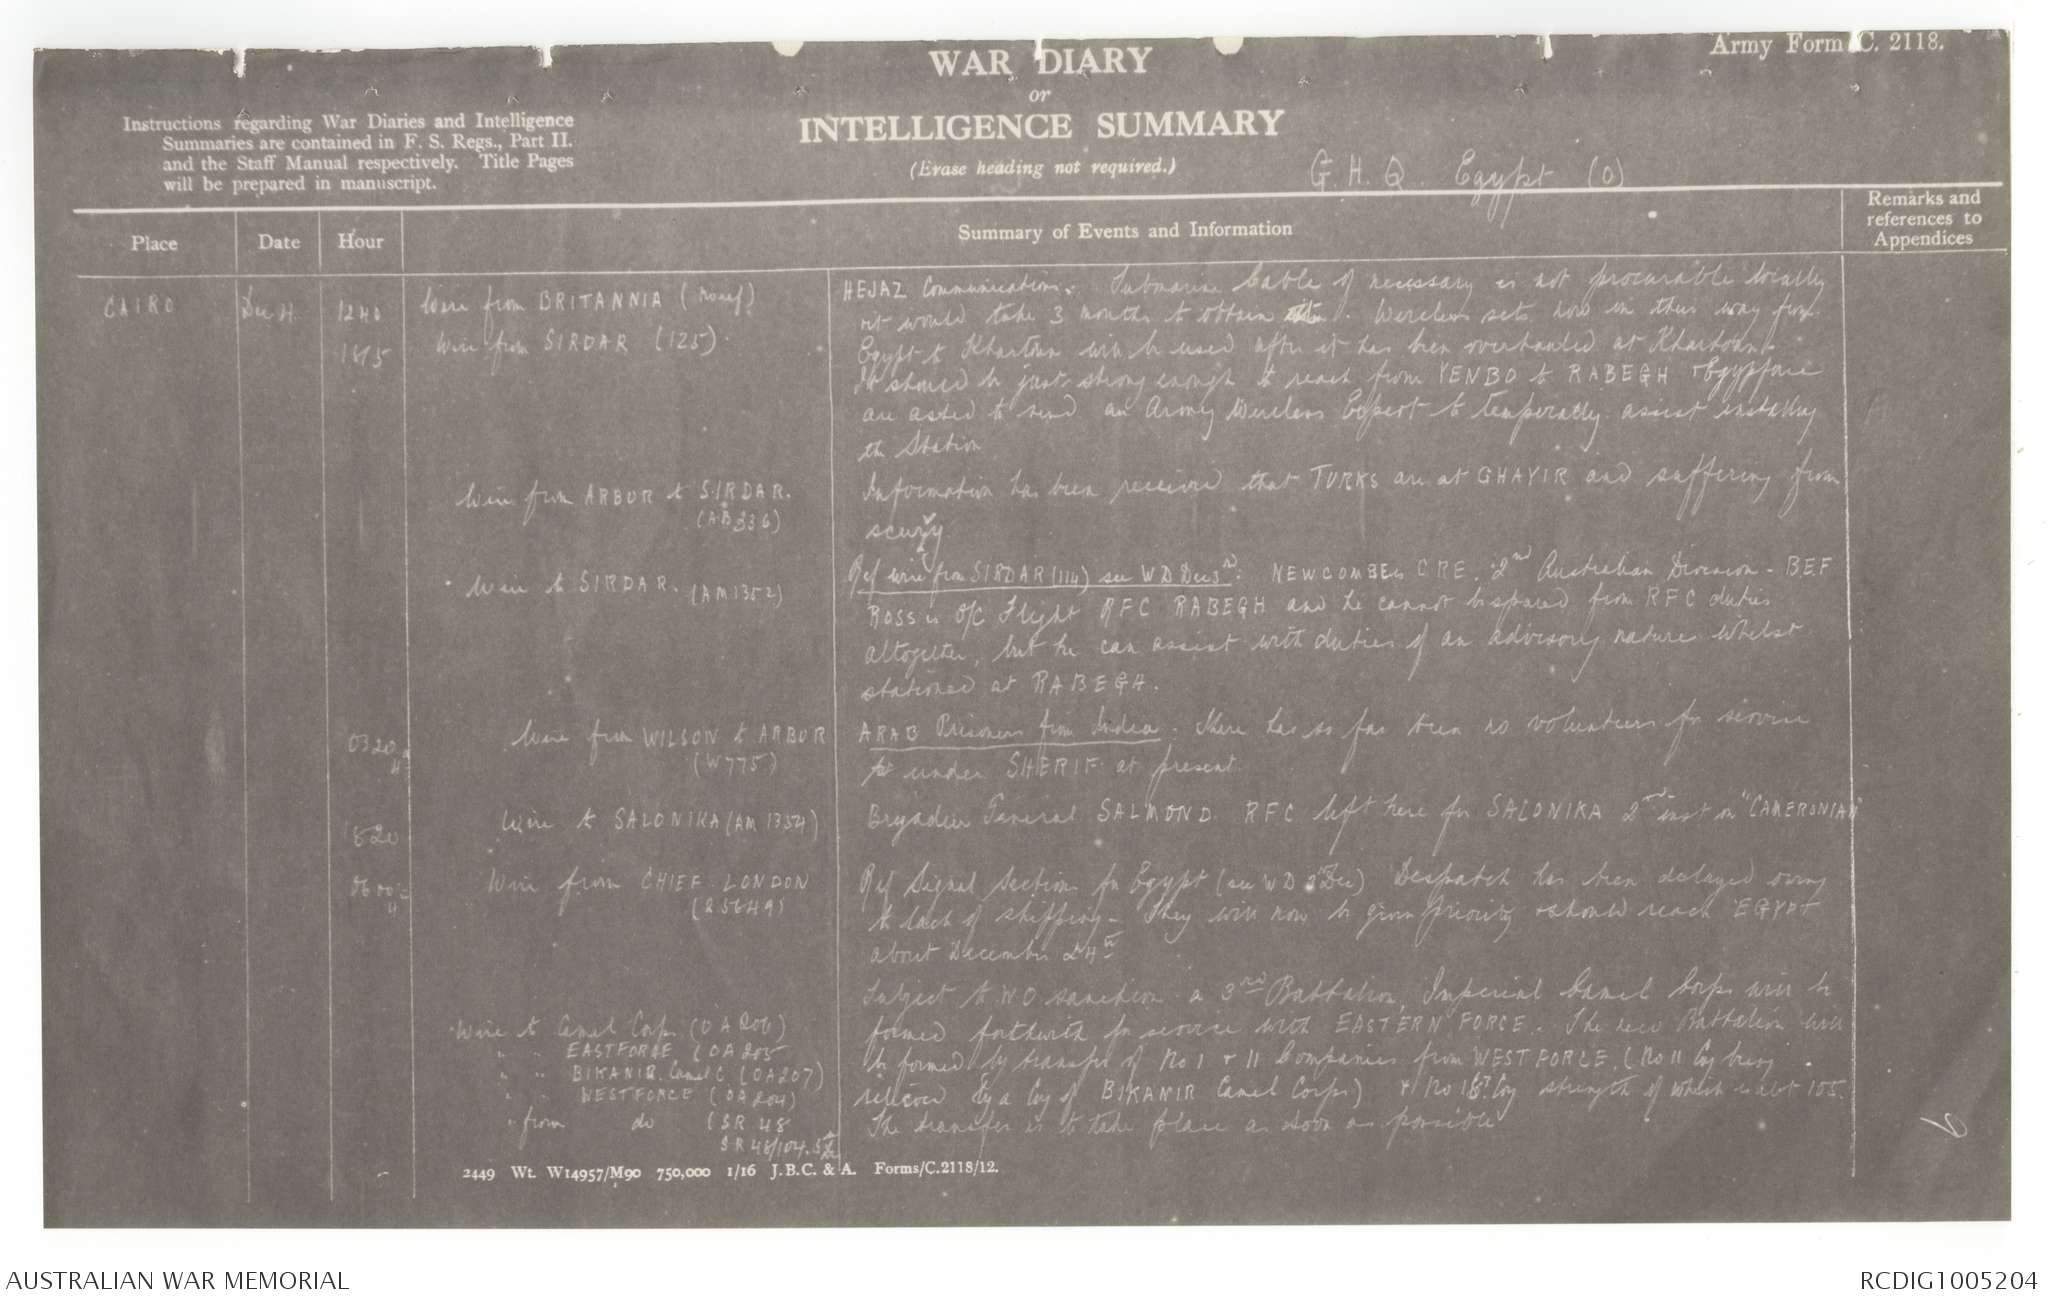 Army Form C. 2118.
WAR DIARY
or
INTELLIGENCE SUMMARY
(Erase heading not required.)
Instructions regarding War Diaries and Intelligence
Summaries are contained in F. S. Regs., Part II.
and the Staff Manual respectively. Title Pages
will be prepared in manuscript.
G.H.Q. Egypt (O)
Place
Date
Hour
Summary of Events and Information
Remarks and
references to
Appendices
CAIRO
Dec 4.
1240
Wire from BRITANNIA
1615
Wire from SIRDAR (125).
HEJAZ Communications. Submarine Cable if necessary is not procurable locally
it would take 3 months to obtain. Wireless sets now on their way from
Egypt to Khartoum will be used after it has been overhauled at Khartoum.
It should be just strong enough to reach from YENBO to RABEGH + Egypforce
are asked to send an Army Wireless Expert to temporally assist installing
the Station
Wire from ARBUR to SIRDAR.
(AB 336)
Information has been received that TURKS are at GHAYIR and suffering from
scurvy
Wire to SIRDAR. (AM1352)
Ref wire from SIRDAR (114) see WD Dec 3rd: NEWCOMBE is CRE. 2nd Australian Division - BEF
ROSS is O/C Flight RFC RABEGH and he cannot be spared from RFC duties
altogether, but he can assist with duties of an advisory nature whilst
stationed at RABEGH.
0320
4
Wire from WILSON to ARBUR
(W775)
ARAB Prisoners from India. There has so far been no volunteers for service
under SHERIF at present
1820
Wire to SALONIKA (AM 1354)
Brigadier General SALMOND RFC left here for SALONIKA 2nd inst on "CAMERONIAN"
0600
4
Wire from CHIEF LONDON
(25649)
Ref Signal Section for Egypt (see WD 3 Dec) Despatch has been delayed owing
to lack of shipping - They will now be given priority + should reach EGYPT
about December 24th
Wire to Camel Corps (OA206)
" " EASTFORCE (OA205
" " BIKANIR Camel C (OA207)
" " WESTFORCE (OA204)
" from do (SR 48
SR 48/104.5
Subject to WO sanction a 3rd Battalion, Imperial Camel Corps will be
formed forthwith for service with EASTERN FORCE. The new Battalion will
be formed by transfer of No 1 + 11 Companies from WESTFORCE. (No 11 Coy being
relieved by a Coy of BIKANIR Camel Corps) + No Coy strength of which is abt 105.
The transfer is to take place as soon as possible
2449 Wt. W14957/M90 750,000 1/16 J.B.C. & A. Forms/C.2118/12.
AUSTRALIAN WAR MEMORIAL
RCDIG1005204